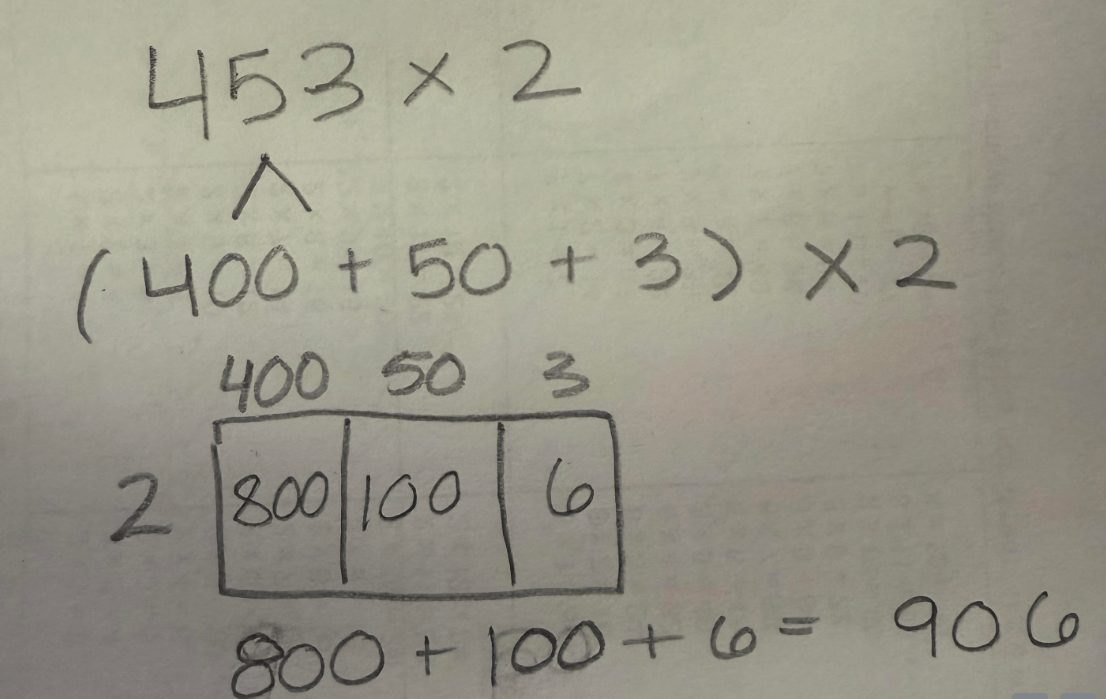 453 × 2
(400 + 50 + 3) × 2
400 50 3
2 800 100 6
800 + 100 + 6 = 906